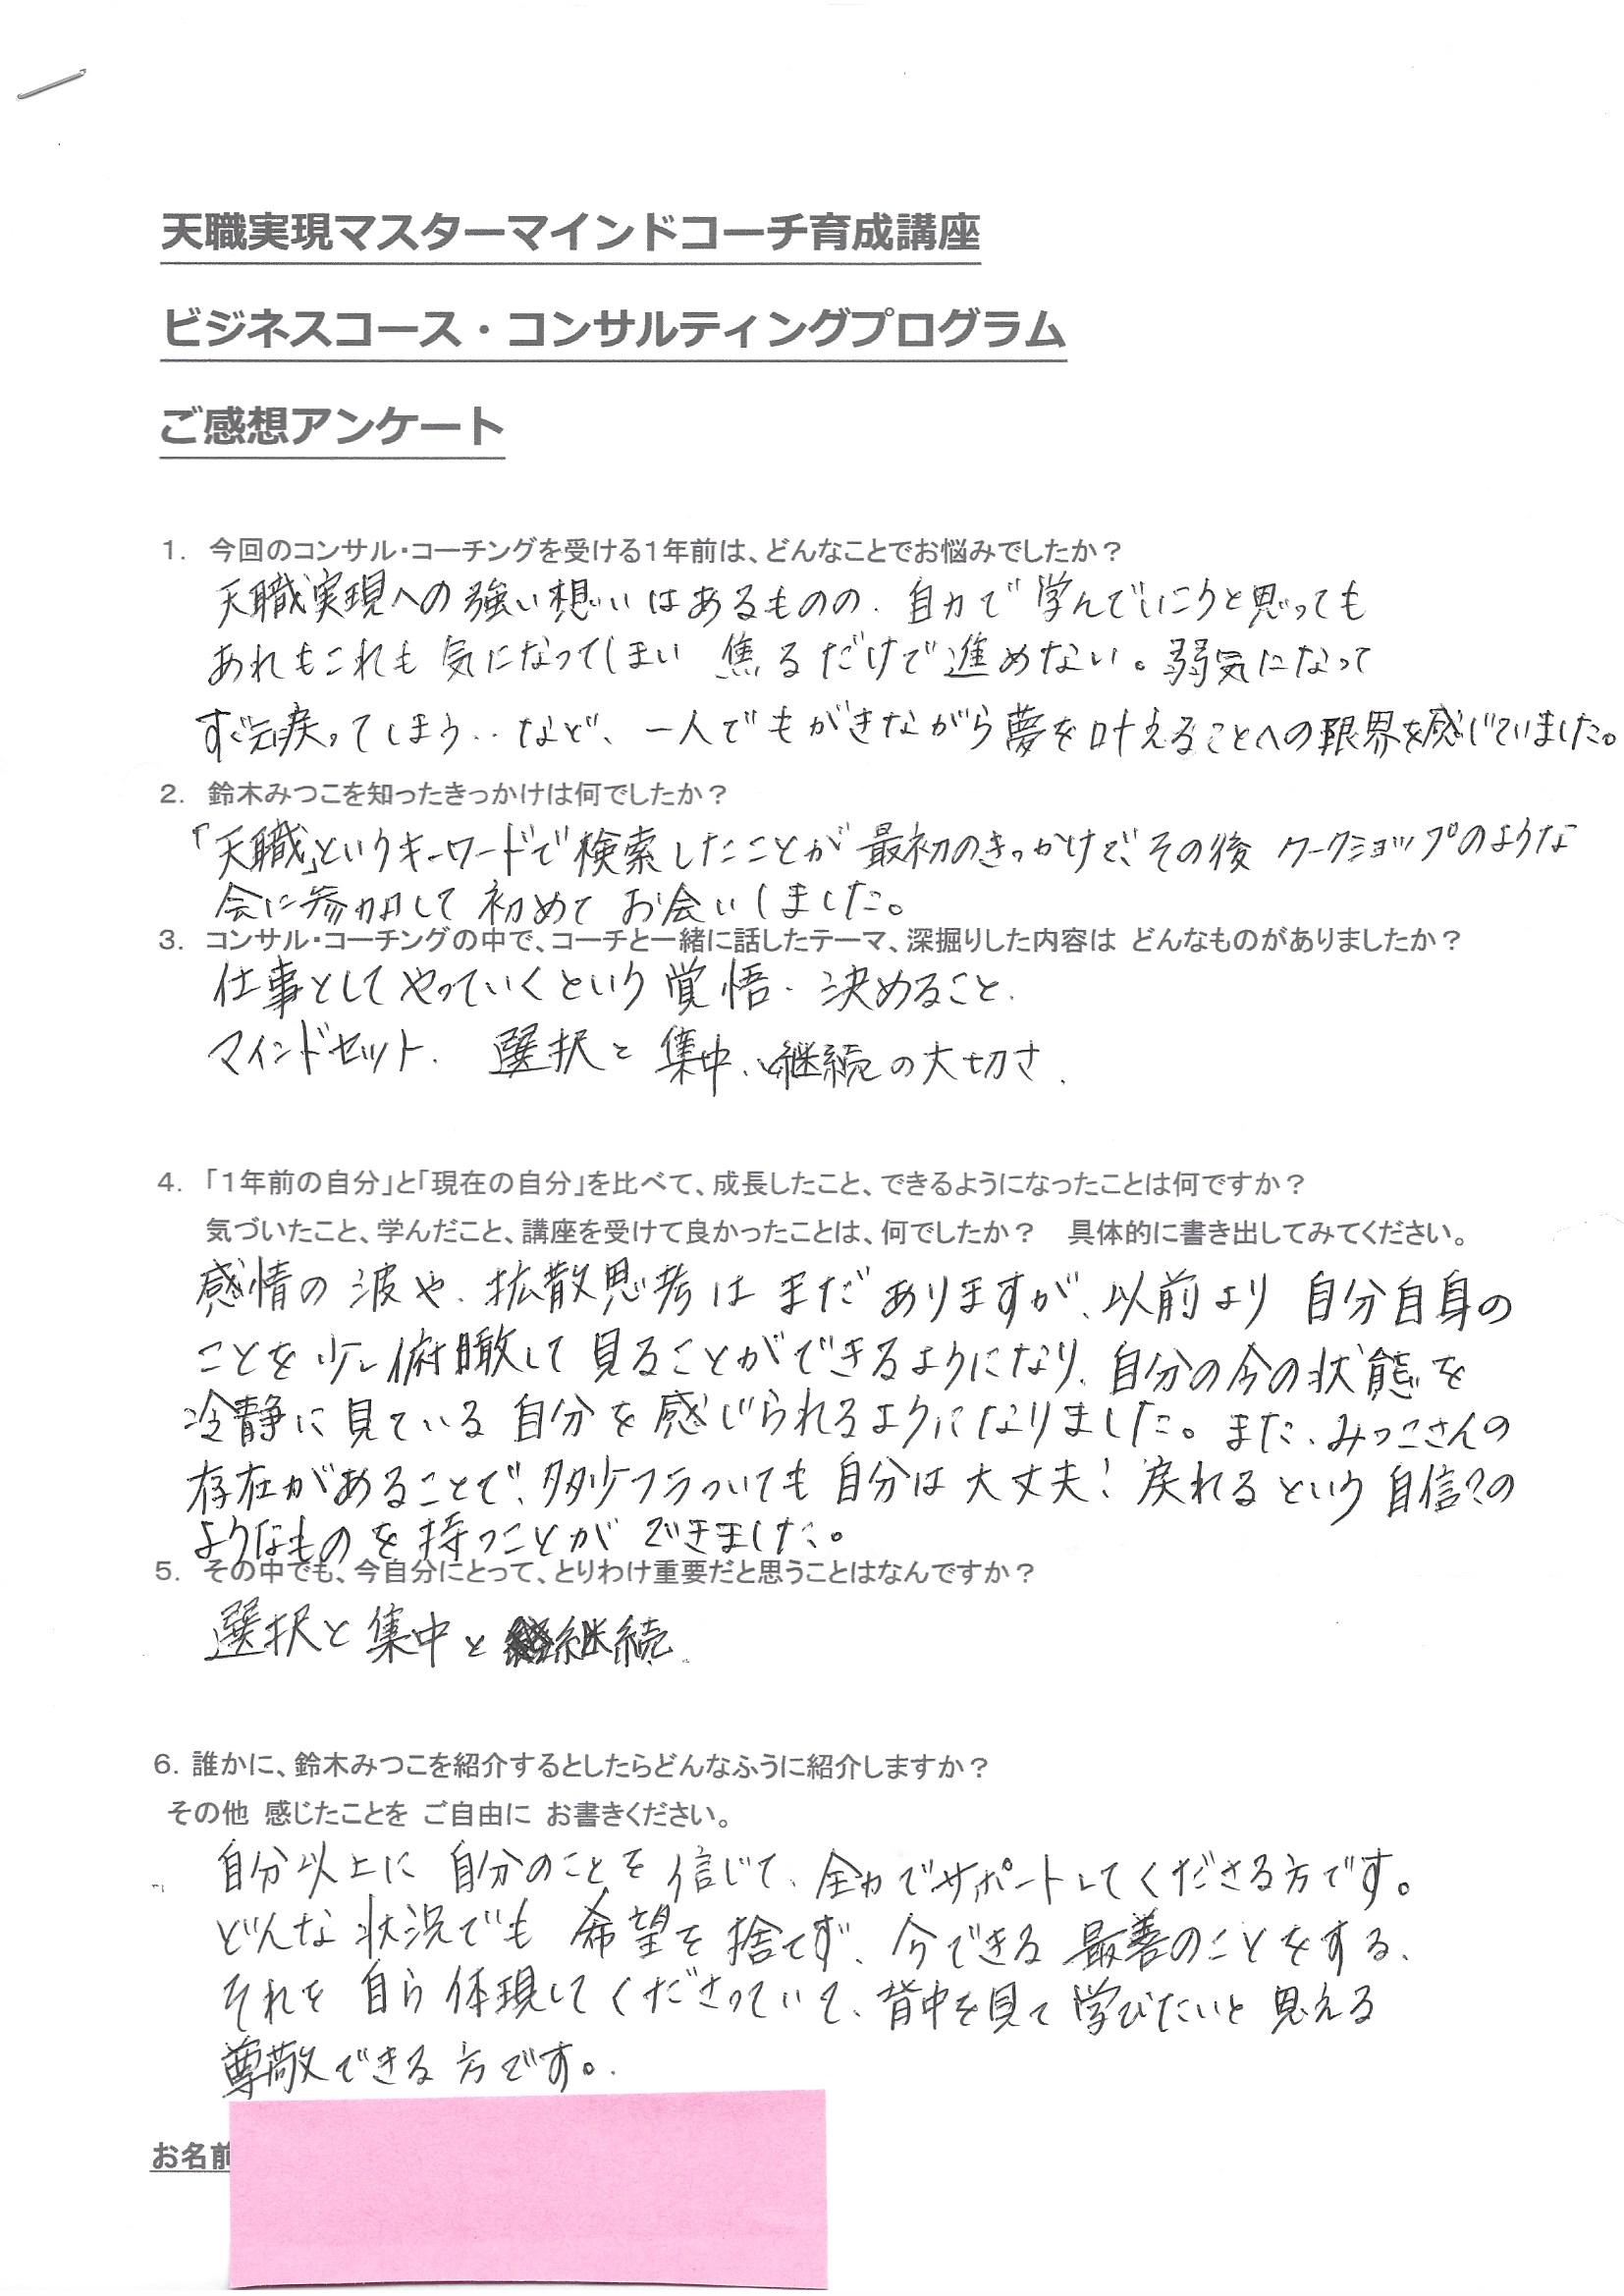 天職実現マスターマインドコーチ育成講座
ビジネスコース・コンサルティングプログラム
ご感想アンケート
1. 今回のコンサル・コーチングを受ける1年前は、どんなことでお悩みでしたか？
天職実現への強い想いはあるものの、自力で学んでいこうと思っても
あれもこれも気になってしまい 焦るだけで進めない。弱気になって
すぐ元に戻ってしまう‥など、一人でもがきながら夢を叶えることへの限界を感じていました。
2. 鈴木みつこを知ったきっかけは何でしたか？
「天職」というキーワードで検索したことが最初のきっかけで、その後 ワークショップのような
会に参加して初めてお会いしました。
3. コンサル・コーチングの中で、コーチと一緒に話したテーマ、深掘りした内容は どんなものがありましたか？
仕事としてやっていくという覚悟、決めること、
マインドセット、選択と集中、継続の大切さ、
4. 「1年前の自分」と「現在の自分」を比べて、成長したこと、できるようになったことは何ですか？
気づいたこと、学んだこと、講座を受けて良かったことは、何でしたか？ 具体的に書き出してみてください。
感情の波や、拡散思考はまだありますが、以前より自分自身の
ことを少し俯瞰して見ることができるようになり、自分の今の状態を
冷静に見ている自分を感じられるようになりました。また、みつこさんの
存在があることで、多少フラついても自分は大丈夫！戻れるという自信？の
ようなものを持つことができました。
5. その中でも、今自分にとって、とりわけ重要だと思うことはなんですか？
選択と集中と継続
6. 誰かに、鈴木みつこを紹介するとしたらどんなふうに紹介しますか？
その他 感じたことを ご自由に お書きください。
自分以上に自分のことを信じて、全力でサポートしてくださる方です。
どんな状況でも希望を捨てず、今できる最善のことをする、
それを自ら体現してくださっていて、背中を見て学びたいと思える
尊敬できる方です。
お名前